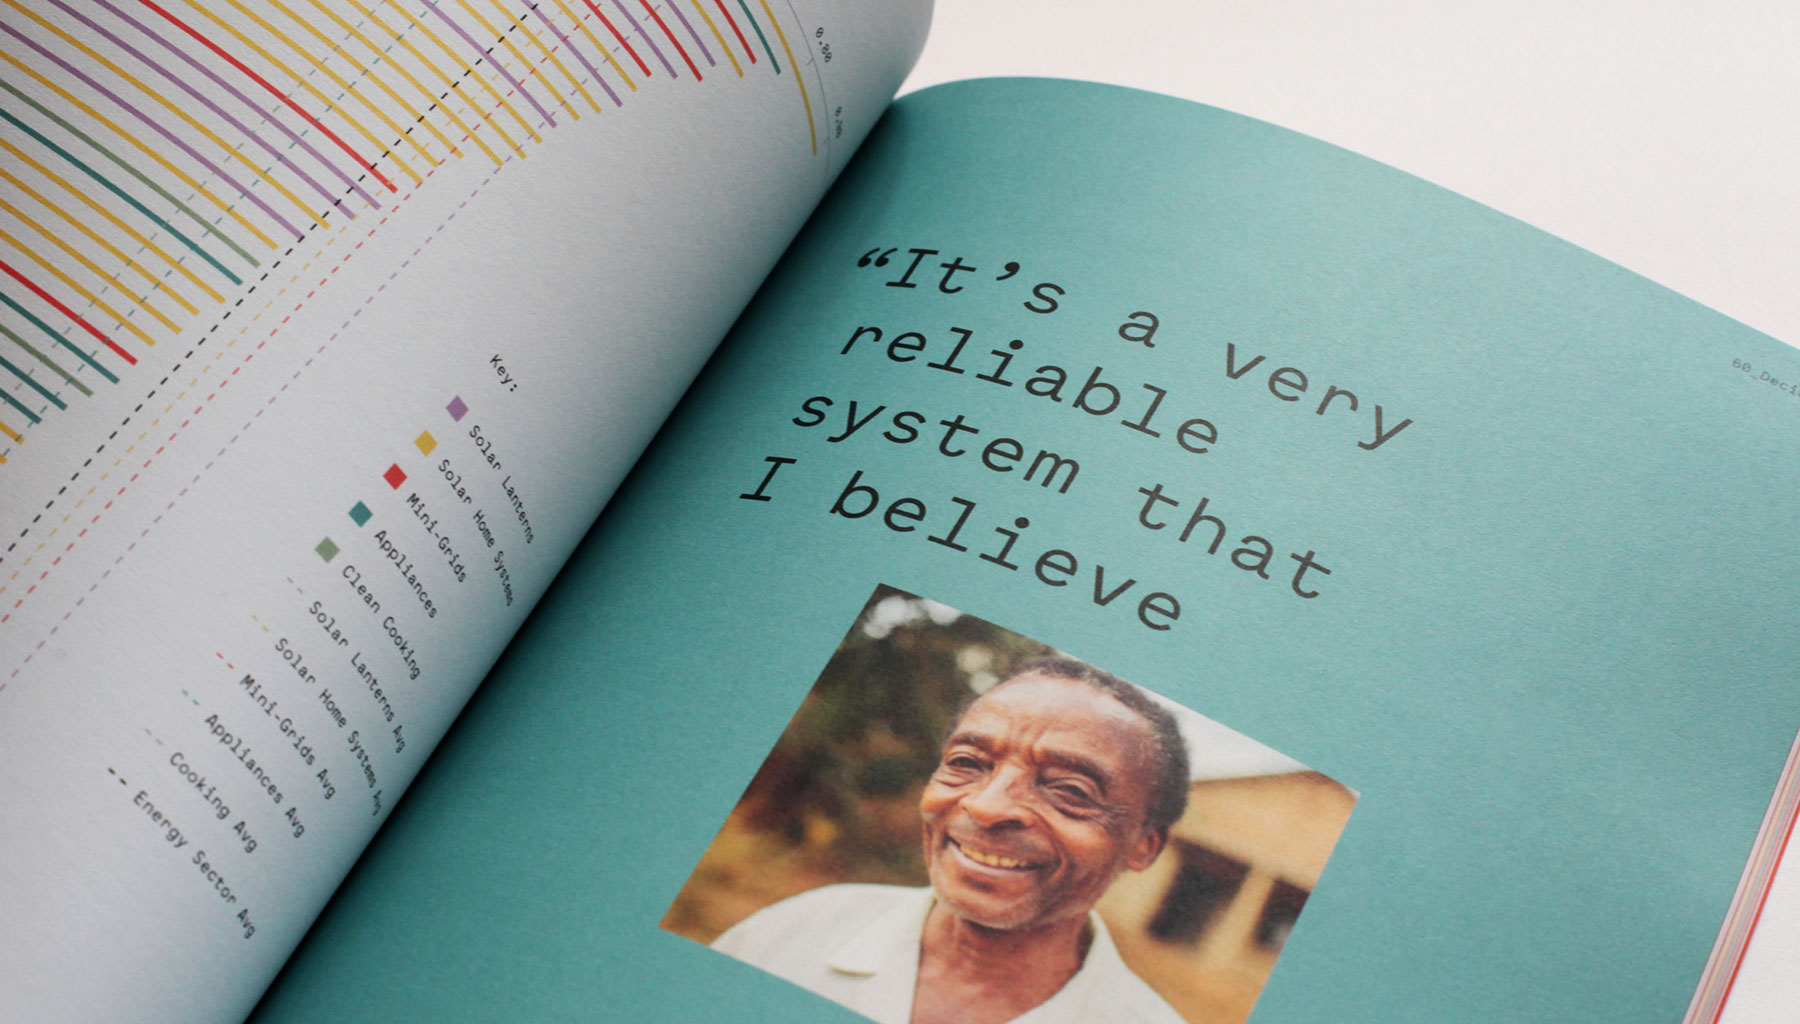 0.80
0.90
Key:
Solar Lanterns
Solar Home Systems
Mini-Grids
Appliances
Clean Cooking
Solar Lanterns Avg
Solar Home Systems Avg
Mini-Grids Avg
Appliances Avg
Cooking Avg
Energy Sector Avg
“It’s a very
reliable
system that
I believe